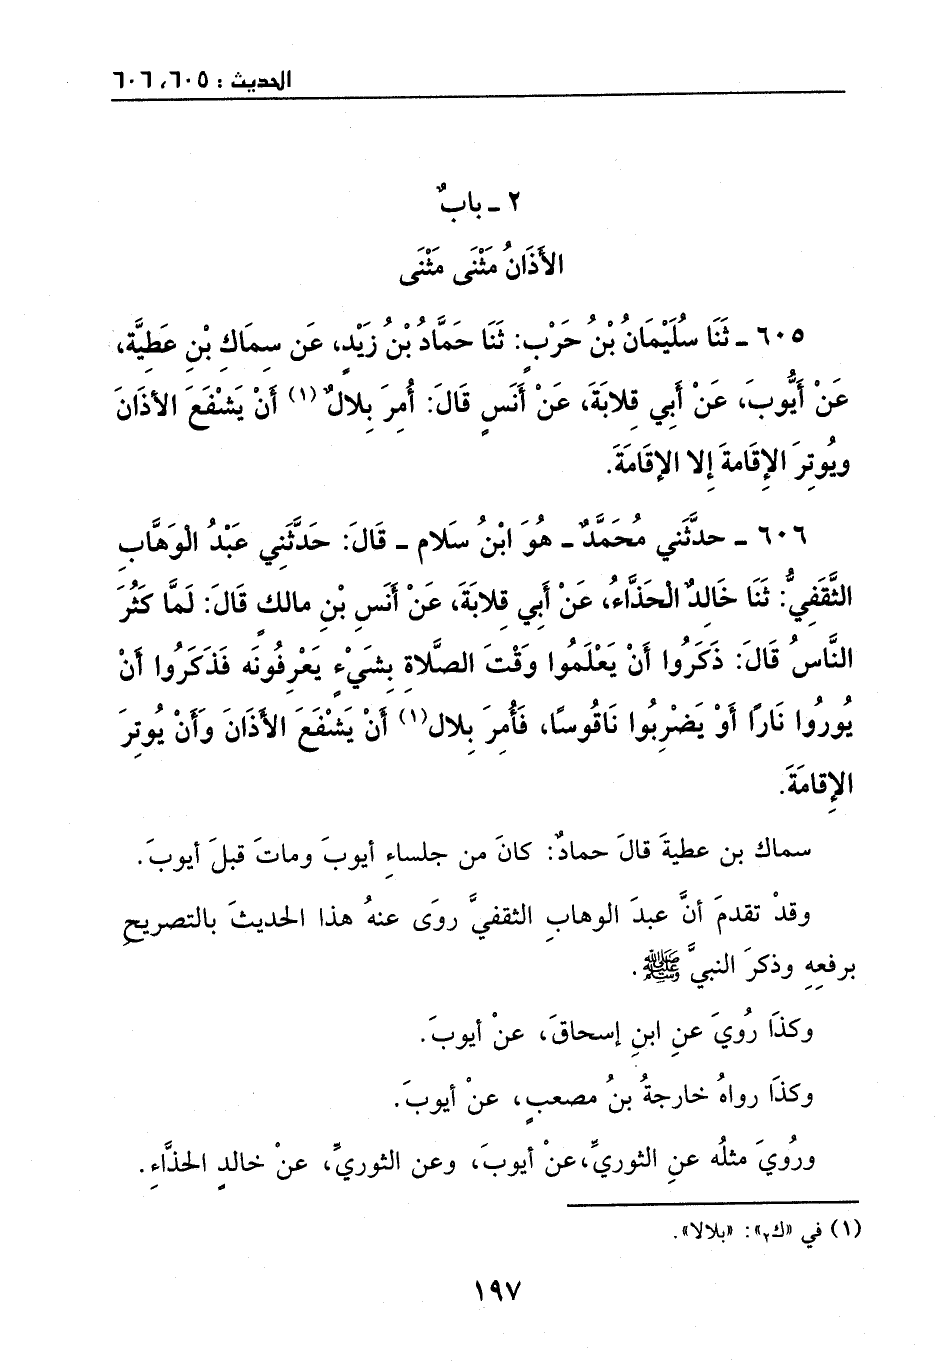 الحديث : ٦٠٥، ٦٠٦
٢ ـ بابٌ
الأَذَانُ مَثْنَى مَثْنَى
٦٠٥ ـ ثَنَا سُلَيْمَانُ بْنُ حَرْبٍ: ثَنَا حَمَّادُ بْنُ زَيْدٍ، عَن سِمَاكِ بْنِ عَطِيَّةَ،
عَنْ أَيُّوبَ، عَنْ أَبِي قِلابَةَ، عَنْ أَنَسٍ قَالَ: أُمِرَ بِلالٌ (١) أَنْ يَشْفَعَ الأذَانَ
ويُوتِرَ الإِقَامةَ إِلا الإِقَامَةَ.
٦٠٦ ـ حدثَّنَي مُحَمَّدٌ ـ هُوَ ابْنُ سَلام ـ قَالَ: حَدَّثَنِي عَبْدُ الْوَهَّابِ
الثَّقَفِيُّ: ثَنَا خَالِدٌ الْحَذَّاءُ، عَنْ أَبِي قِلابَةَ، عَنْ أَنَسِ بْنِ مالكٍ قَالَ: لَمَّا كَثُرَ
النَّاسُ قَالَ: ذَكَرُوا أَنْ يَعْلَمُوا وَقْتَ الصَّلاةِ بِشَيْءٍ يَعْرِفُونَه فَذَكَرُوا أَنْ
يُورُوا نَارًا أَوْ يَضْرِبُوا نَاقُوسًا، فَأُمِرَ بِلال(١) أَنْ يَشْفَعَ الأَذَانَ وَأَنْ يُوتِرَ
الإِقامَةَ.
سماك بن عطيةَ قالَ حمادٌ: كانَ من جلساءِ أيوبَ وماتَ قبلَ أيوبَ.
وقدْ تقدمَ أنَّ عبدَ الوهابِ الثقفيَّ روَى عنهُ هذا الحديثَ بالتصريحِ
برفعِهِ وذكرَ النبيَّ ﷺ.
وكذَا رُويَ عنِ ابنِ إسحاقَ، عنْ أيوبَ.
وكذَا رواهُ خارجةُ بنُ مصعبٍ، عنْ أيوبَ.
ورُويَ مثلُه عنِ الثوريِّ،عنْ أيوبَ، وعن الثوريِّ، عنْ خالدٍ الحذَّاءِ.
(١) في «ك٢»: «بلالا».
١٩٧